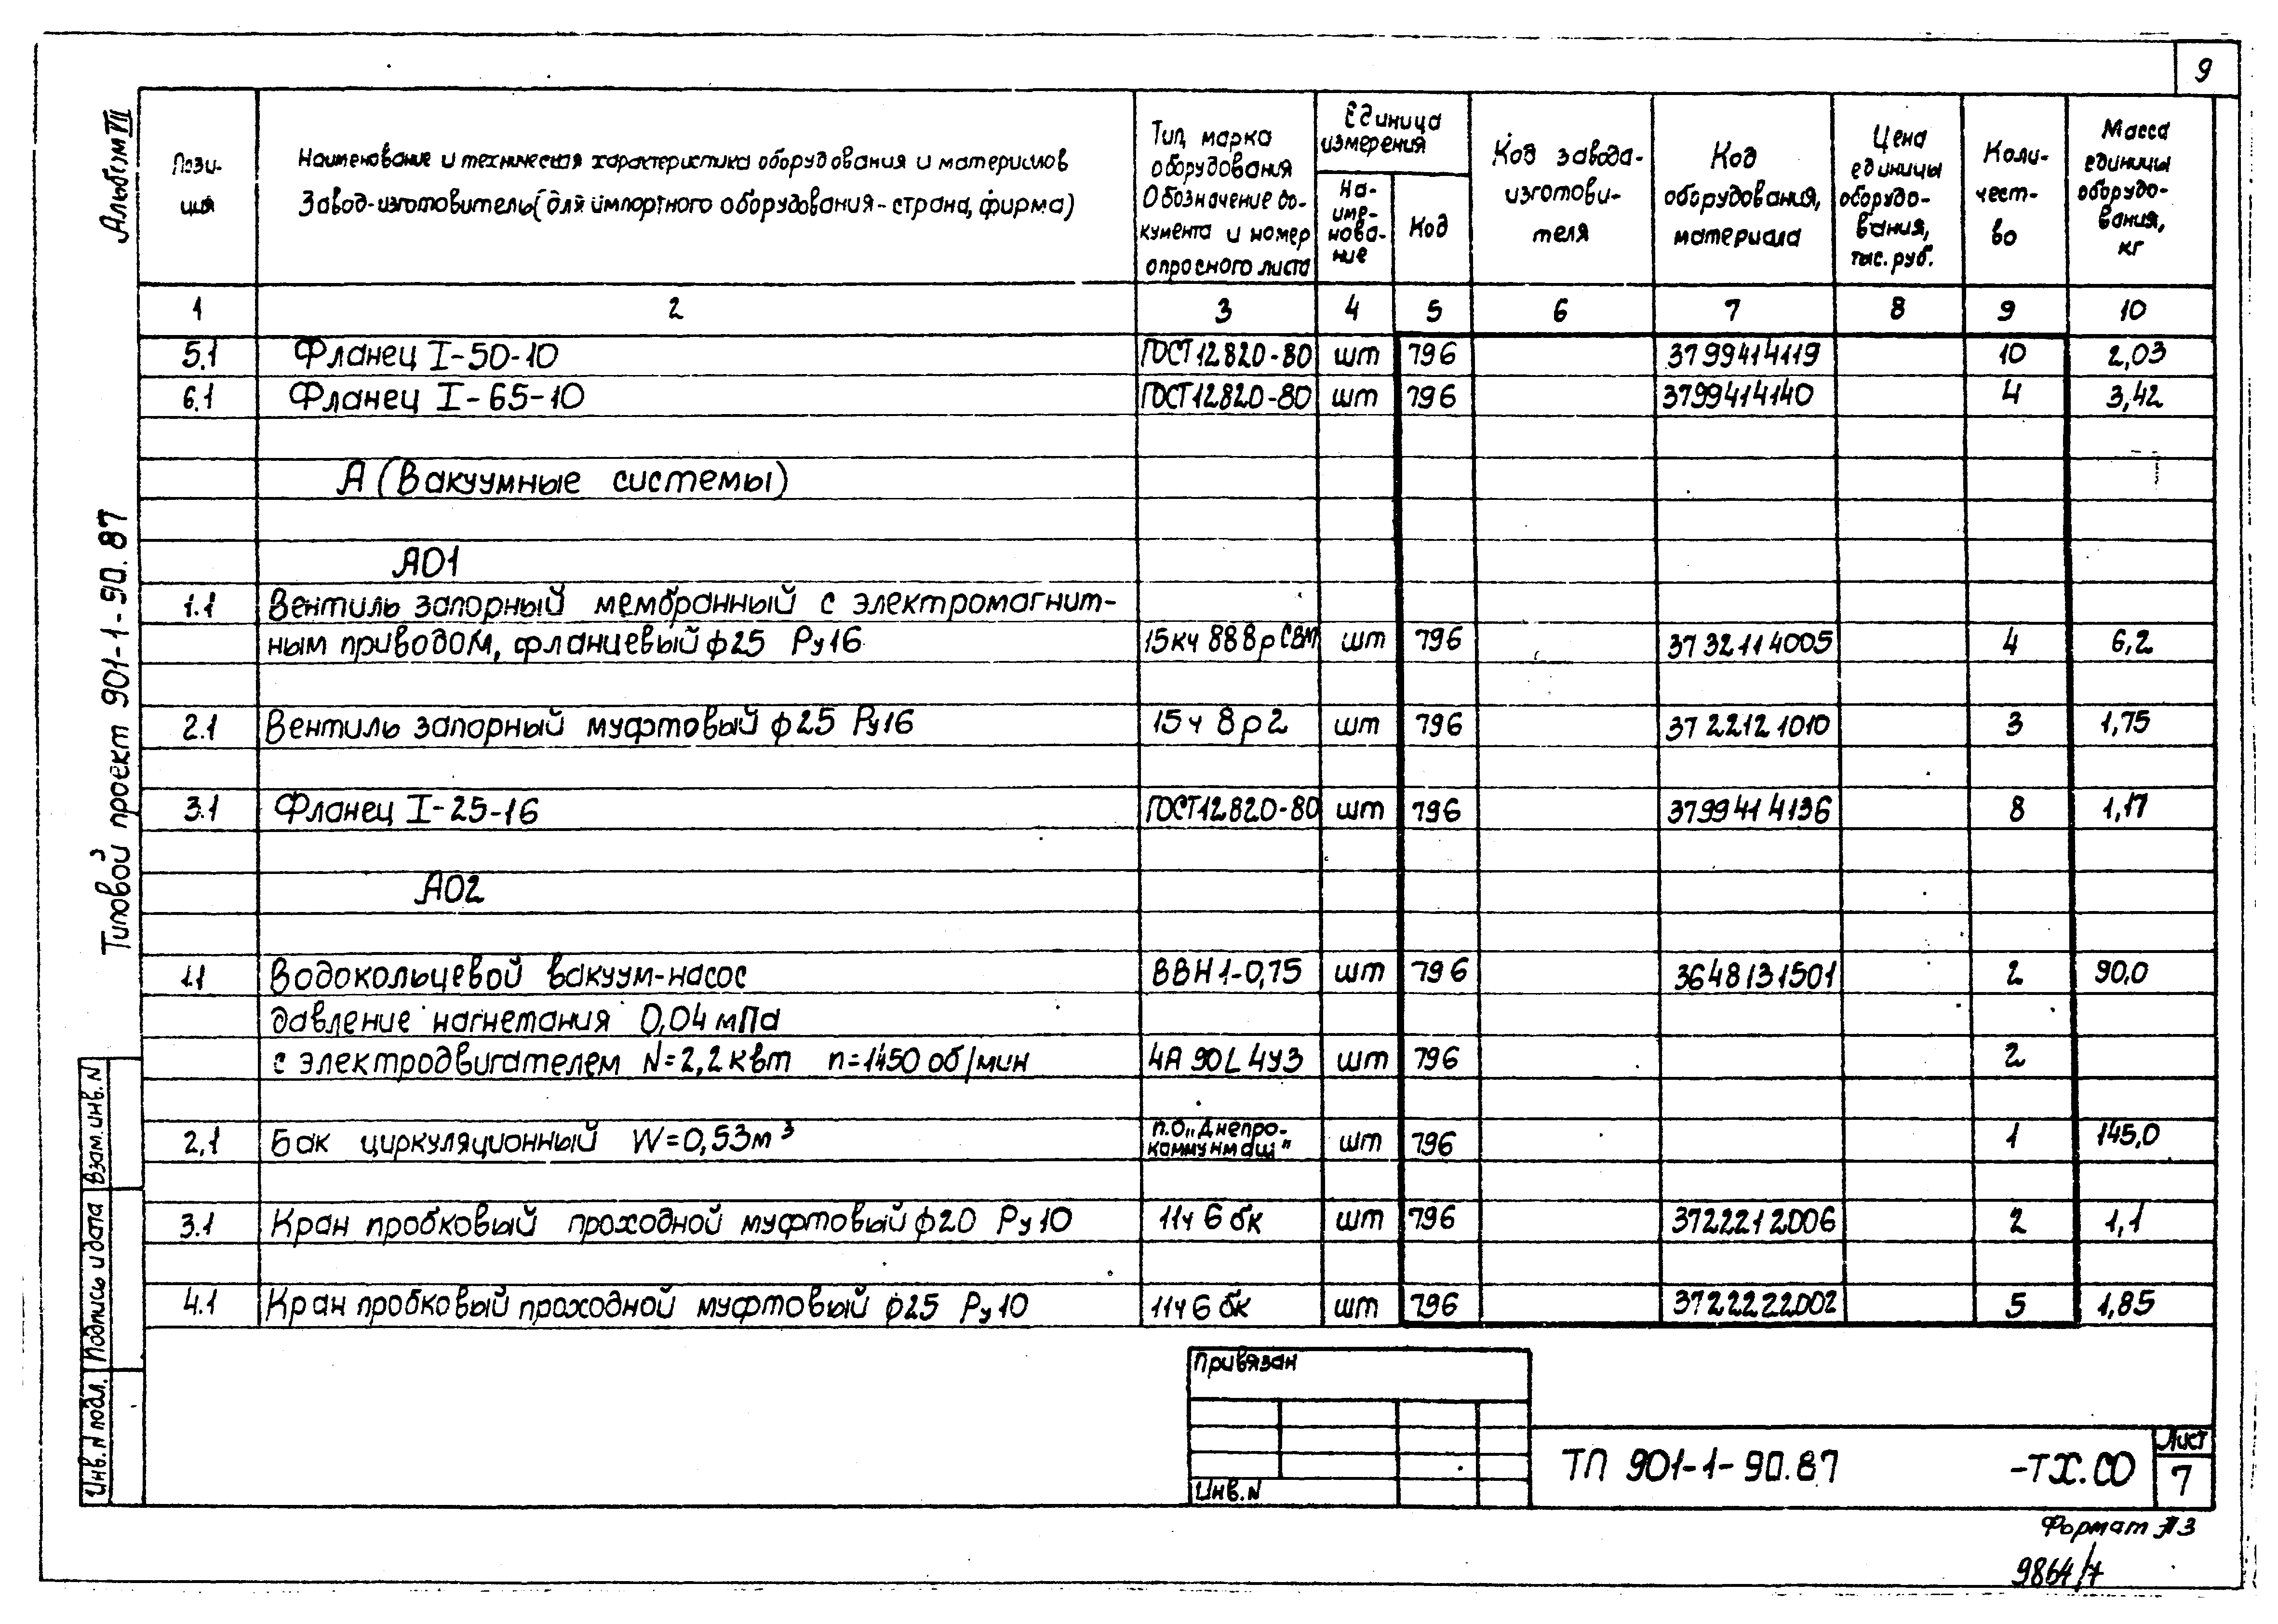 9
Альбом VII
Типовой проект 901-1-90.87
Пози-
ция
Наименование и техническая характеристика оборудования и материалов
Завод-изготовитель (для импортного оборудования - страна, фирма)
Тип, марка
оборудования
Обозначение до-
кумента и номер
опросного листа
Единица
измерения
На-
име-
нова-
ние
Код
Код завода-
изготови-
теля
Код
оборудования,
материала
Цена
единицы
оборудо-
вания,
тыс. руб.
Коли-
чест-
во
Масса
единицы
оборудо-
вания,
кг
1 2 3 4 5 6 7 8 9 10
5.1 Фланец I-50-10 ГОСТ 12820-80 шт 796 3799414119 10 2,03
6.1 Фланец I-65-10 ГОСТ 12820-80 шт 796 3799414140 4 3,42
А (Вакуумные системы)
А01
1.1 Вентиль запорный мембранный с электромагнит-
ным приводом, фланцевый ф25 Ру16 15кч 888р СВМ шт 796 3732114005 4 6,2
2.1 Вентиль запорный муфтовый ф25 Ру16 15ч 8р2 шт 796 3722121010 3 1,75
3.1 Фланец I-25-16 ГОСТ 12820-80 шт 796 3799414136 8 1,17
А02
1.1 Водокольцевой вакуум-насос ВВН1-0,75 шт 796 3648131501 2 90,0
давление нагнетания 0,04 мПа
с электродвигателем N=2,2 квт n=1450 об/мин 4А 90L 4У3 шт 796 2
2,1 Бак циркуляционный W=0,53м³ п.о „Днепро-
коммунмаш" шт 796 1 145,0
3.1 Кран пробковый проходной муфтовый ф20 Ру10 11ч 6 бк шт 796 3722212006 2 1,1
4.1 Кран пробковый проходной муфтовый ф25 Ру10 11ч 6 бк шт 796 3722222002 5 1,85
Взам. инв. N
Подпись и дата
Инв. N подл.
Привязан
Инв. N
ТП 901-1-90.87 -ТХ.СО
Лист
7
Формат А3
9864/7